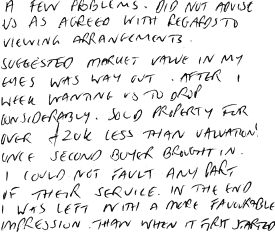 A FEW PROBLEMS. DID NOT ADVISE
US AS AGREED WITH REGARDS TO
VIEWING ARRANGEMENTS.
SUGGESTED MARKET VALUE IN MY
EYES WAS WAY OUT. AFTER 1
WEEK WANTING US TO DROP
CONSIDERABLY. SOLD PROPERTY FOR
OVER £20K LESS THAN VALUATION!
ONCE SECOND BUYER BROUGHT IN.
I COULD NOT FAULT ANY PART
OF THEIR SERVICE. IN THE END
I WAS LEFT WITH A MORE FAVOURABLE
IMPRESSION. THAN WHEN IT FIRST STARTED